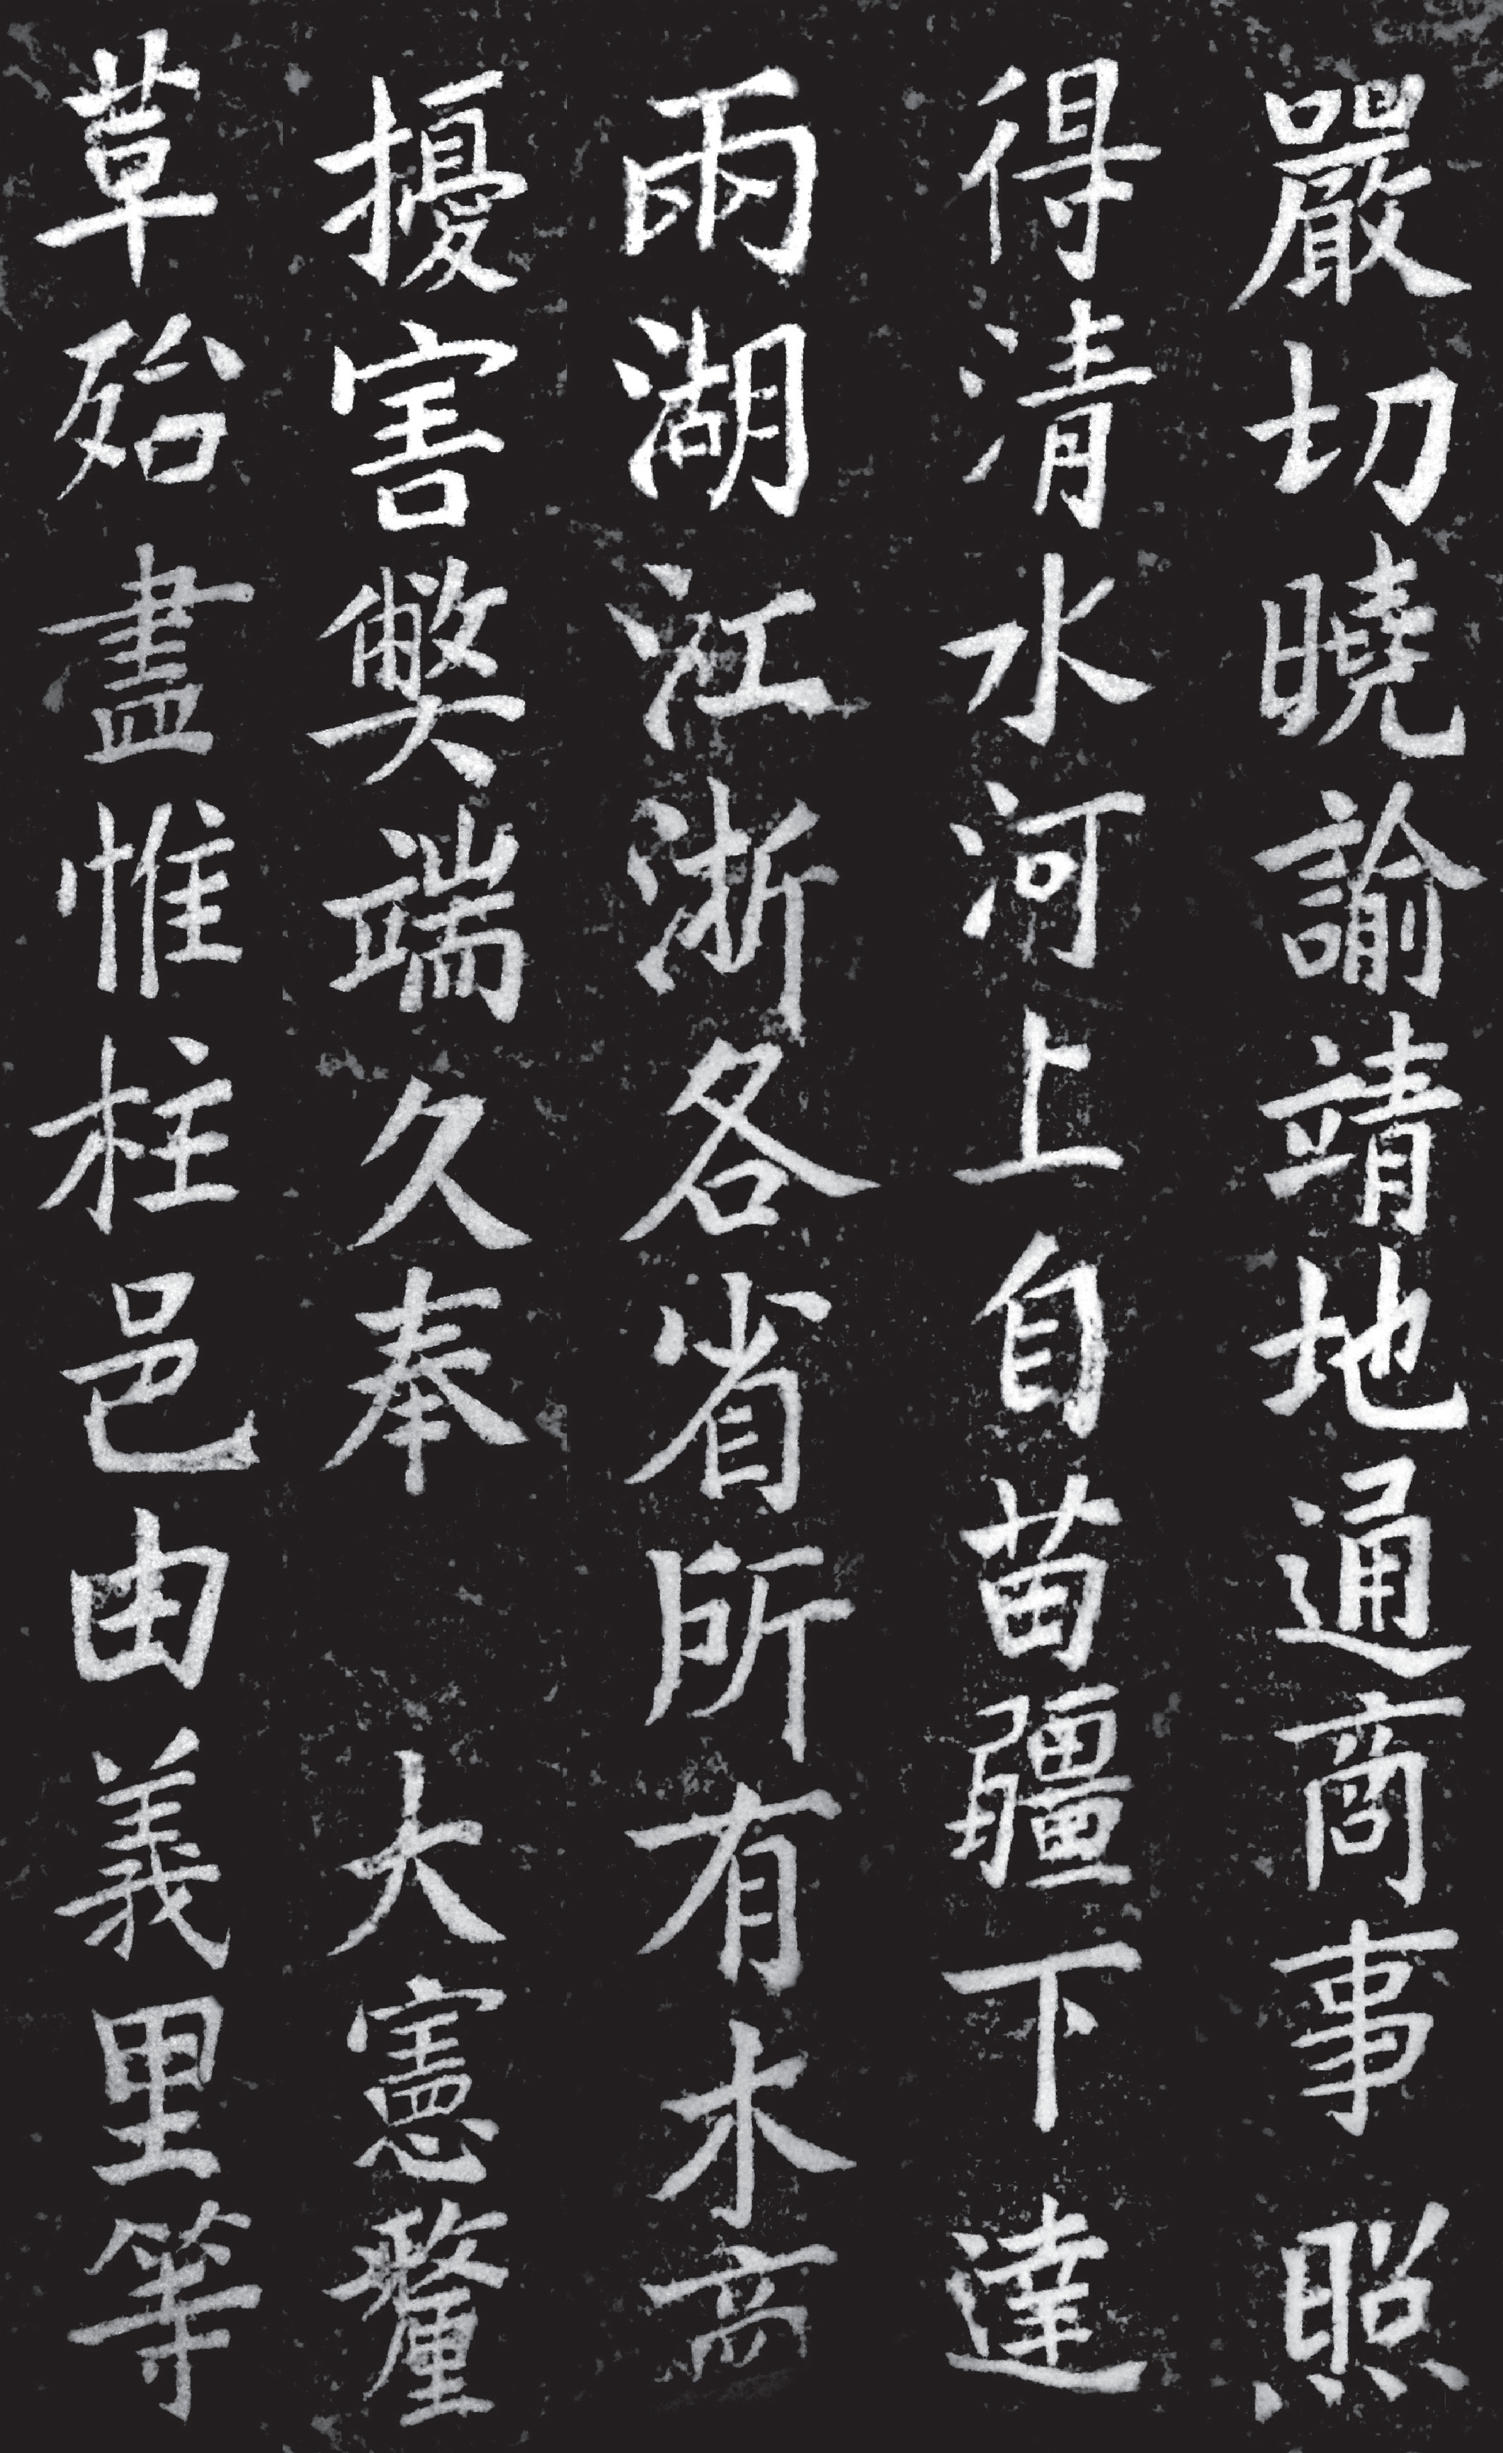 嚴切曉諭靖地通商事 照
得清水河上自苗疆下 達
兩湖江浙各省所有木商
擾害獘端久奉 大憲釐
革殆盡惟柱邑由義里等